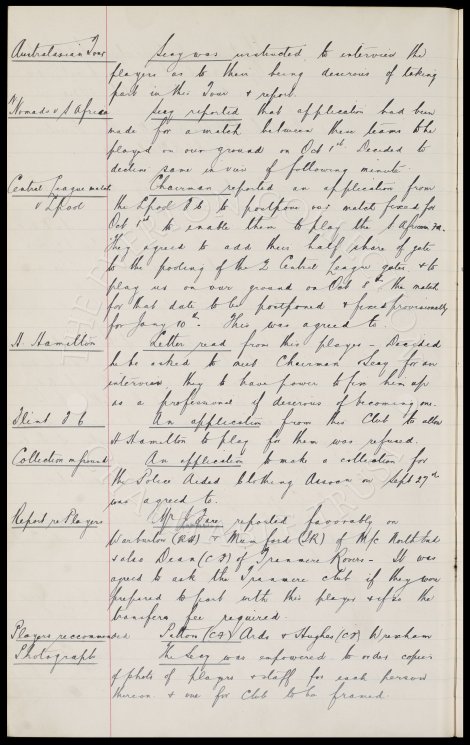 Australasian Tour Secy was instructed to interview the
players as to their being desirous of taking
part in this Tour & report.
Nomads v S Africa Secy reported that application had been
made for a match between these teams to be
played on our ground on Oct 1st. Decided to
decline same in view of following minute.
Central League match Chairman reported an application from
v L'pool the L'pool F C to postpone our match fixed for
Oct 1st to enable them to play the S African Tm.
They agreed to add their half share of gate
to the pooling of the 2 Central League gates & to
play us on our ground on Oct 8th, the match
for that date to be postponed & fixed provisionally
for Jany 10th. This was agreed to.
H Hamilton Letter read from this player – Decided
he be asked to meet Chairman & Secy for an
interview they to have power to fix him up
as a professional if desirous of becoming one.
Flint F C An application from this Club to allow
H Hamilton to play for them was refused.
Collection on ground An application to make a collection for
the Police Aided Clothing Assocn on Sept 27th
was agreed to.
Report re Players Mr Fare reported favorably on
Warburton (RH) & Mumford (IR) of M/c North End
& also Dean (CF) of Tranmere Rovers – It was
agreed to ask the Tranmere club if they were
prepared to part with this player & if so the
transfer fee required.
Players reccommended Patton (CF) Ards & Hughes (CF) Wrexham
Photographs The Secy was empowered to order copies
of photo of players & staff for each person
thereon & one for Club to be framed.